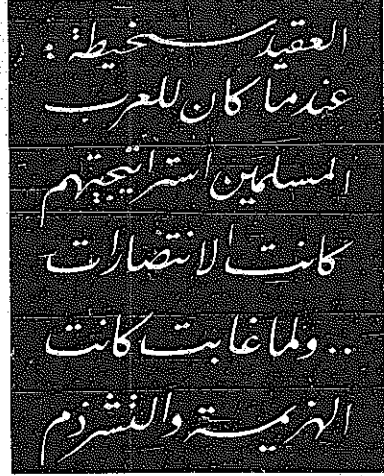 العقيد سخيطة :
عندما كان للعرب
المسلمين استراتيجيتهم
كانت الانتصارات
.. ولما غابت كانت
الهزيمة والتشرذم